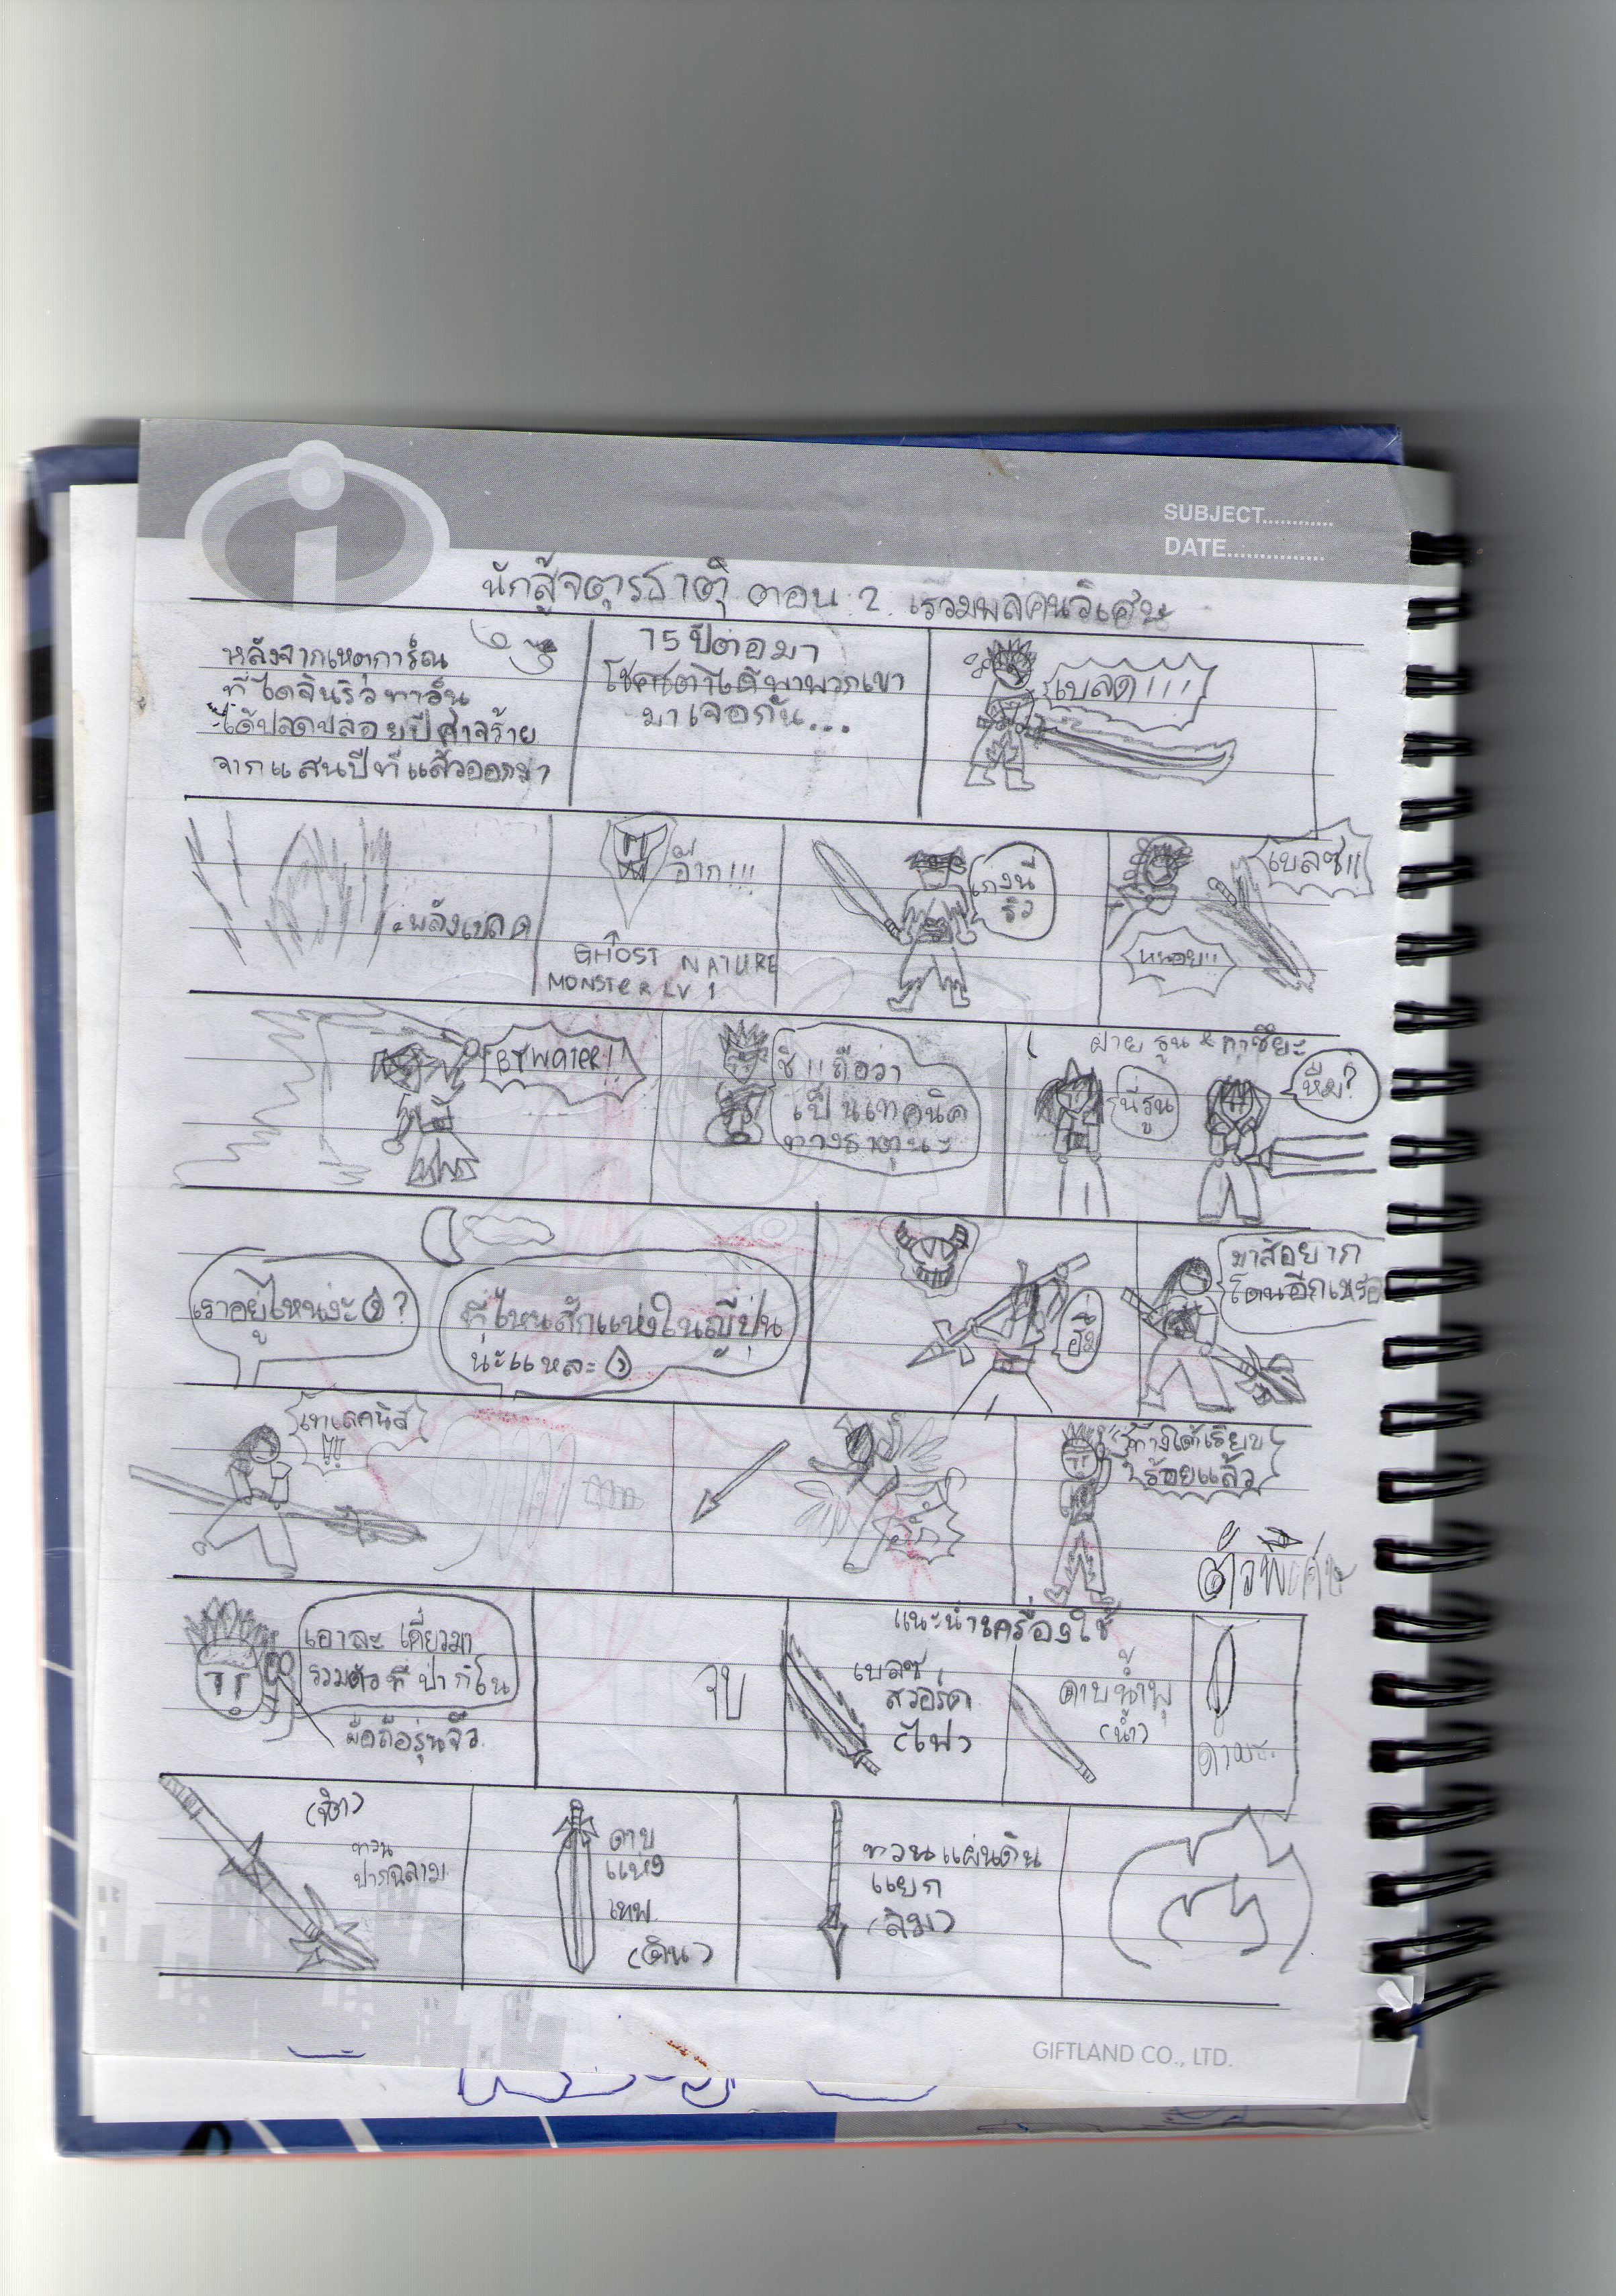 SUBJECT............
DATE...............
นักสู้จตุรธาตุ ตอน 2 เรวมพลคนวิเศษ
หลังจากเหตุการ์ณ
ได้ปลดปลอยปีศาจร้าย
จากแสนปีที่แล้วออกมา
15 ปีต่อมา
โชคชะตาได้พาพวกเขา
มาเจอกัน...
เบลด!!!
พลังเบลด
อ๊าก!!!
GHOST NATURE
MONSTER LV 1
เกงนี่
ริว
เบลซ!!
หนอย!!
BY WATER!!
ชิ!! ถือว่า
เป็นเทคนิค
ทางธาตุนะ
ฝ่าย รูน & กาซึยะ
นี่รูน
หืม?
เราอยู่ไหนงะ ?
ที่ไหนสักแห่งในญี่ปุ่น
นะแหละ
อึม
มาสิอยาก
โดนอีกเหรอ
เทเลคนิส
!!!
อั๊ก
ทางใต้เรียบ
ร้อยแล้ว
ตัวพิเศษ
เอาละ เดี๋ยวมา
รวมตัวที่ ป่ากิโน
มือถือรุ่นจิ๋ว
จบ
แนะนำเครื่องใช้
เบลซ
สวอร์ด
(ไฟ)
ดาบน้ำพุ
(น้ำ)
ทวน
ปากฉลาม
ดาบ
แห่ง
เทพ
(ดิน)
ทวนแผ่นดิน
แยก
(ลม)
GIFTLAND CO., LTD.